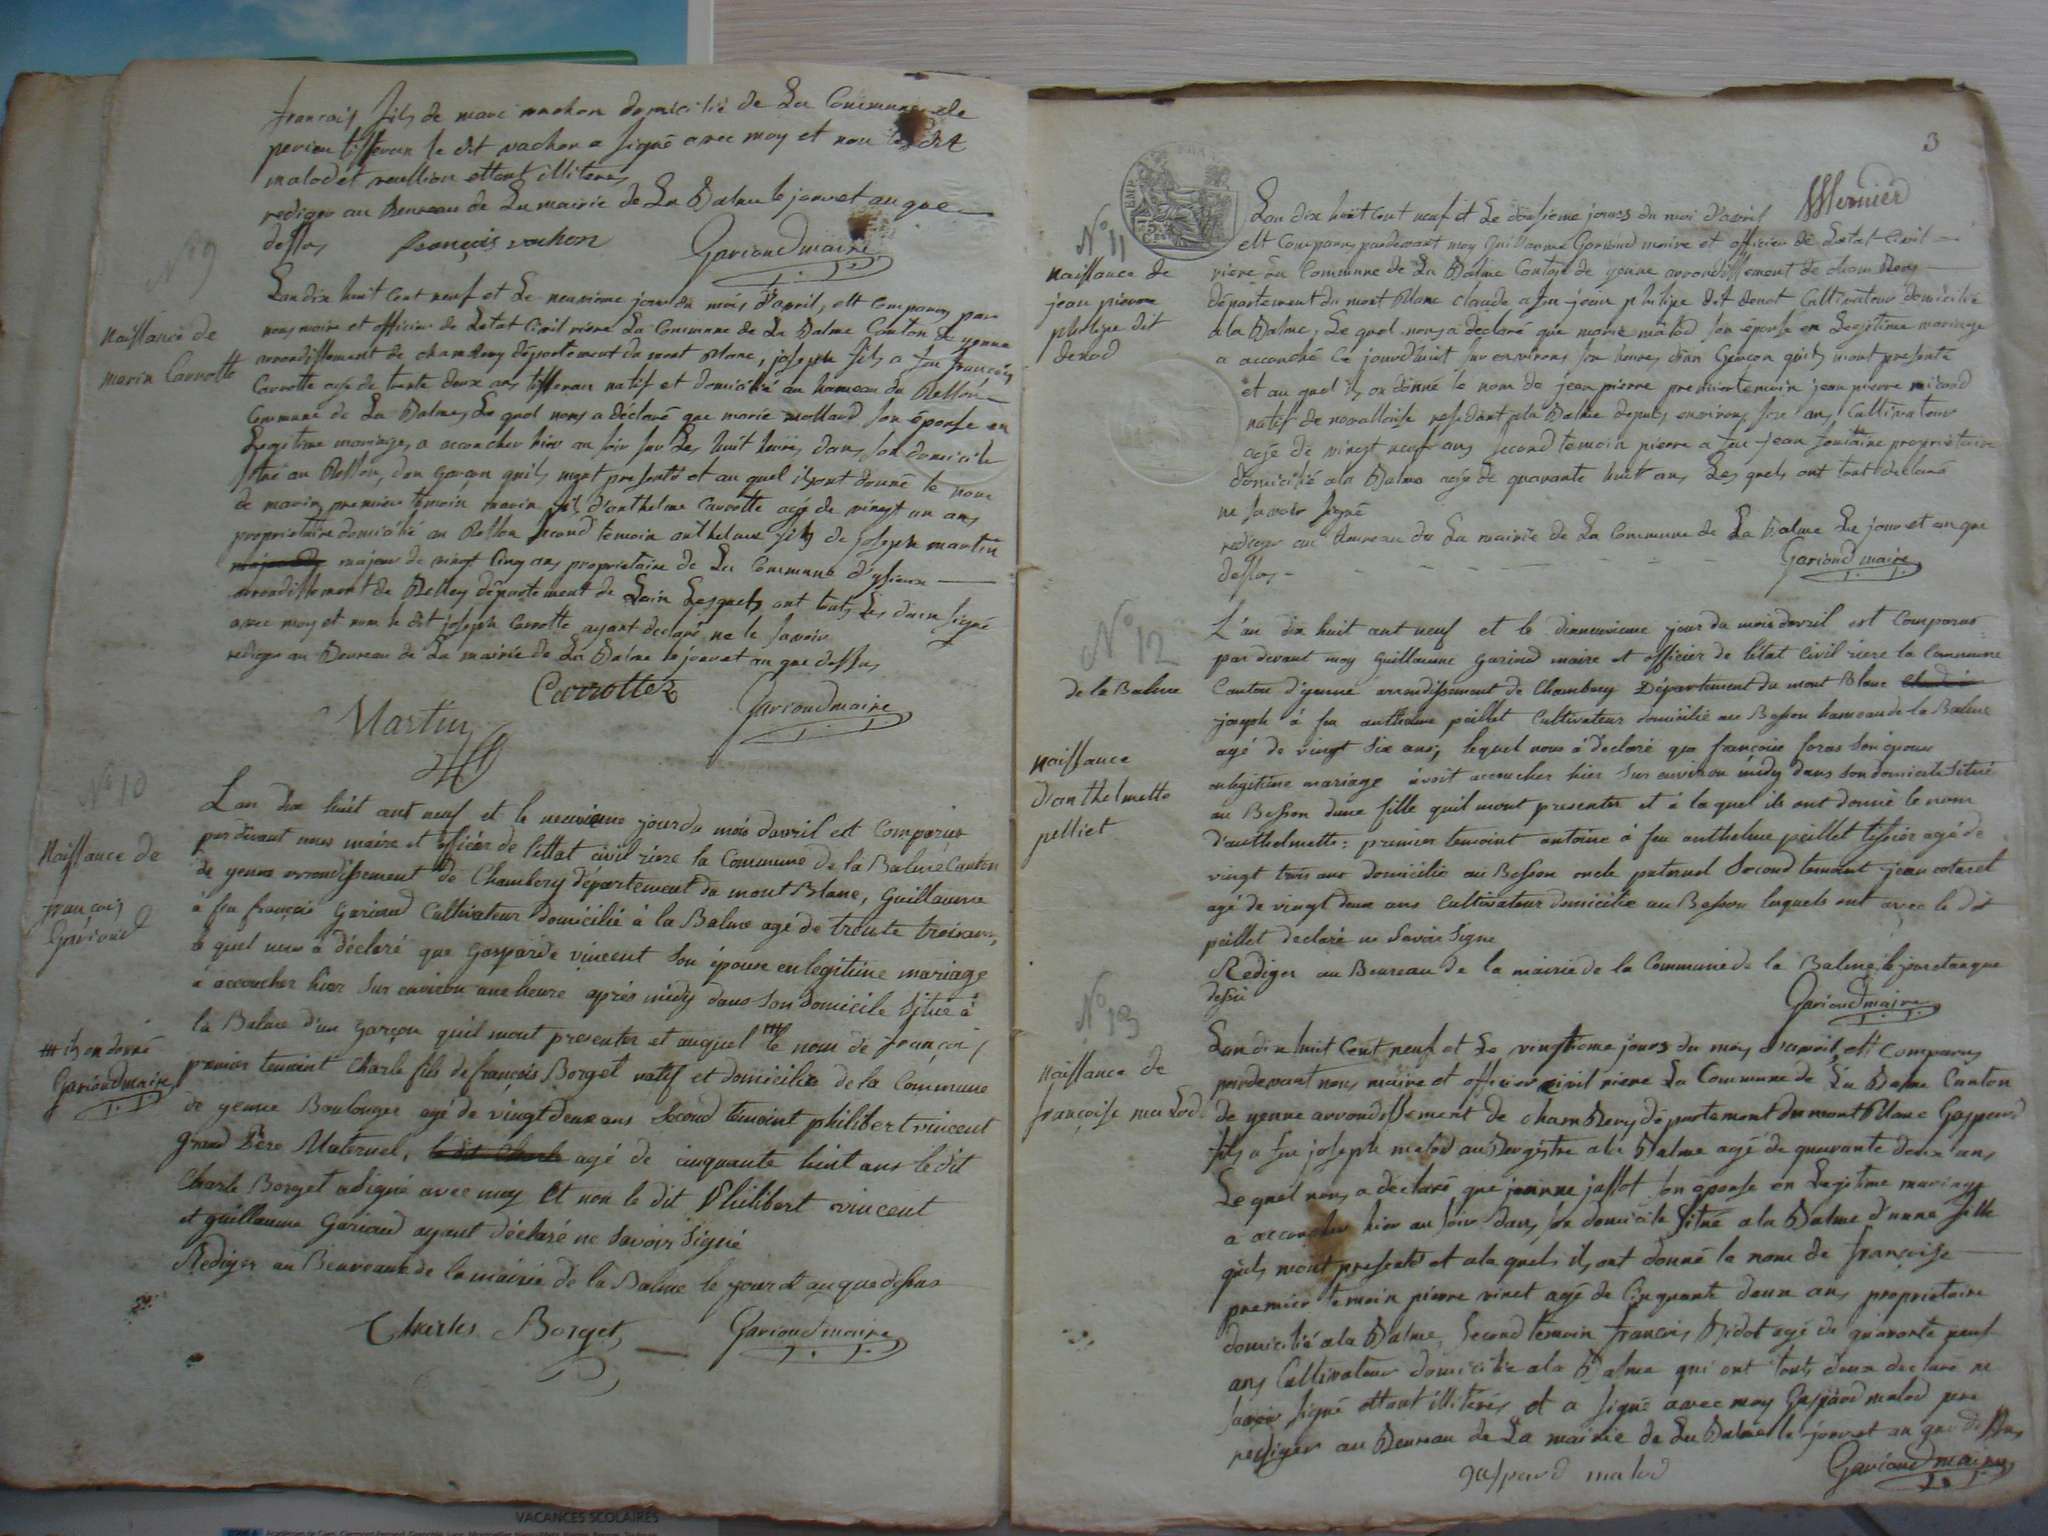 françois fils de marc vachon domicilié de La Commune de
le dit vachon a signé avec moy et non les dit
malod et reullion ettant illiteres
rediger au Beureau de La mairie de La Balme le jour et an que
dessus françois vachon Garioud maire
N° 9
Naissance de
marin Carrotte
Lan dix huit Cent neuf et Le neuvieme jour du mois d'avril, est Comparus par
nous maire et officier de Letat Civil riere La Commune de La Balme Canton de yenne
arrondissement de chambery département du mont Blanc, joseph fils a feu françois
Carrotte age de trente deux ans tisseran natif et domicilié au hameau du Besson
Commune de La Balme, Le quel nous a déclaré que marie mollard son éponse en
Legitime mariage, a accoucher hier au soir sur Les huit heures dans son domicile
sitné au Besson, d'un garçon quils mont presenté et au quel ils ont donné le nom
de marin, premier temoin marin fils d'anthelme Carrotte agé de vingt un ans
proprietaire domicilié au Besson second temoin anthelme fils de joseph martin
majeur de vingt Cinq ans proprietaire de La Commune d'
arrondissement de Belley département de Lain Lesquels ont touts Les deux signé
avec moy et non le dit joseph Carrotte ayant declaré ne le savoir
rediger au Beureau de La mairie de La Balme le jour et an que dessus
Carrotte
Martin Garioud maire
N° 10
Naissance de
françois
Garioud
Lan dix huit cent neuf et le neuvieme jour du mois davril est Comparus
par devant nous maire et officier de l'ettat civil riere la Commune de la Balme Canton
de yenne arrondissement de Chambery département du mont Blanc, Guillaume
à feu françois Garioud Cultivateur domicilié à la Balme agé de trente trois ans,
le quel nous à déclaré que Gasparde vincent son épouse en legitime mariage
à accoucher hier sur environ une heure après midy dans son domicile situé à
la Balme d'un garçon quil mont presenter et auquel # le nom de françois
# ils on donné
Garioud maire
premier temoint Charle fils de françois Borget natif et domicilié de la Commune
de yenne Boulanger agé de vingt deux ans second temoint philibert vincent
grand Père Maternel, le dit Charle agé de cinquante huit ans le dit
Charle Borget a signé avec moy Et non le dit Philibert vincent
et guillaume Garioud ayant déclaré ne savoir signé
Rediger au Beureau de la mairie de la Balme le jour et an que dessus
Charles Borget Garioud maire
3
Mernier
N° 11
Naissance de
jean pierre
philipe dit
denod
Lan dix huit Cent neuf et Le dousieme jours du moi d'avril
est Comparus pardevant moy Guillaume Garioud maire et officier de Letat Civil
riere La Commune de La Balme Canton de yenne arrondissement de chambery
département du mont Blanc claude a feu jean philipe dit denot Cultivateur domicilié
a la Balme, Le quel nous a déclaré que marie malod son éponse en Legitime mariage
a accouché Ce jourdhuit sur environs heures d'un Garçon quils mont presenté
et au quel ils on donné le nom de jean pierre premier temoin jean pierre micoud
natif de novalloise residant a la Balme depuis environs six ans Cultivateur
agé de vingt neuf ans second temoin pierre a feu jean fontaine proprietaire
domicilié ala Balme agé de quarante huit ans Les quels ont tout declaré
ne savoir signé
rediger au Beureau de La mairie de La Commune de La Balme Le jour et an que
dessus Garioud maire
N° 12
de la Balme
Naissance
d'anthelmette
pelliet
L'an dix huit cent neuf et le dixneuvieme jour du mois davril est Comparus
par devant moy Guillaume Gariod maire et officier de l'état Civil riere la Commune
Canton d'yenne arrondissement de Chambery Département du mont Blanc
joseph à feu anthelme peillet Cultivateur domicilié au Besson hameau de la Balme
agé de vingt six ans, lequel nous à déclaré que françoise foras son épouse
en legitime mariage avoit accoucher hier sur environ midy dans son domicile situé
au Besson dune fille quil mont presenter et à laquel ils ont donné le nom
d'anthelmette: premier temoint antoine à feu anthelme peillet tissier agé de
vingt trois ans domicilié au Besson oncle paternel Second temoint jean cotarel
agé de vingt deux ans Cultivateur domicilié au Besson lesquels ont avec le dit
peillet declaré ne savoir signe
Rediger au Beureau de la mairie de la Commune de la Balme le jour et an que
dessu Garioud maire
N° 13
Naissance de
françoise malod
Lan dix huit Cent neuf et Le vingtieme jours du mois d'avril est Comparus
pardevant nous maire et officier civil riere La Commune de La Balme Canton
de yenne arrondissement de chambery département du mont Blanc Gaspard
fils a feu joseph malod auBergiste a la Balme agé de quarante deux ans
Le quel nous a declaré que jeanne jassot son éponse en Legitime mariage
a accoucher hier au soir dans son domicile sitné a la Balme d'unne fille
quils mont presenté et ala quels ils ont donné le nom de françoise
premier temoin pierre vinet agé de Cinquante deux ans proprietaire
domicilié a la Balme, second temoin françois Bidot agé de quarante neuf
ans Cultivateur domicilié a la Balme qui ont touts deux declaré ne
savoir signé ettant illiterés et a signé avec moy Gaspard malod pere
rediger au Beureau de La mairie de La Balme le jour et an que dessus
gaspard malod Garioud maire
VACANCES SCOLAIRES